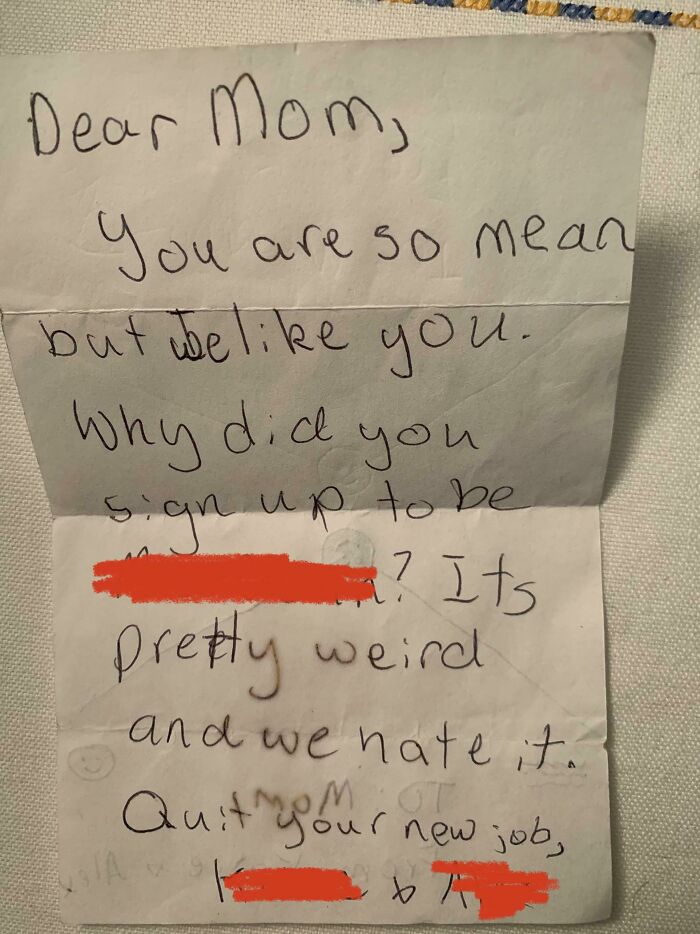 Dear Mom,
You are so mean
but we like you.
Why did you
sign up to be
? Its
pretty weird
and we hate it.
Quit your new job,